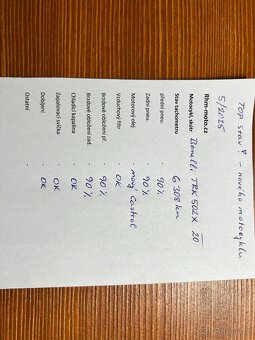 TOP stav! - nového motocyklu
5/2025
Rhm-moto.cz
Motocykl, skútr Benelli TRK 502X
Stav tachometru 6 308 km
přední pneu. 90%
Zadní pneu. 90%
Motorový olej . nový Castrol
Vzduchový filtr . OK
Brzdové obložení př. . 90%
Brzdové obložení zad. . 90%
Chladící kapalina . OK
Zapalovací svíčka . OK
Dobíjení . OK
Ostatní